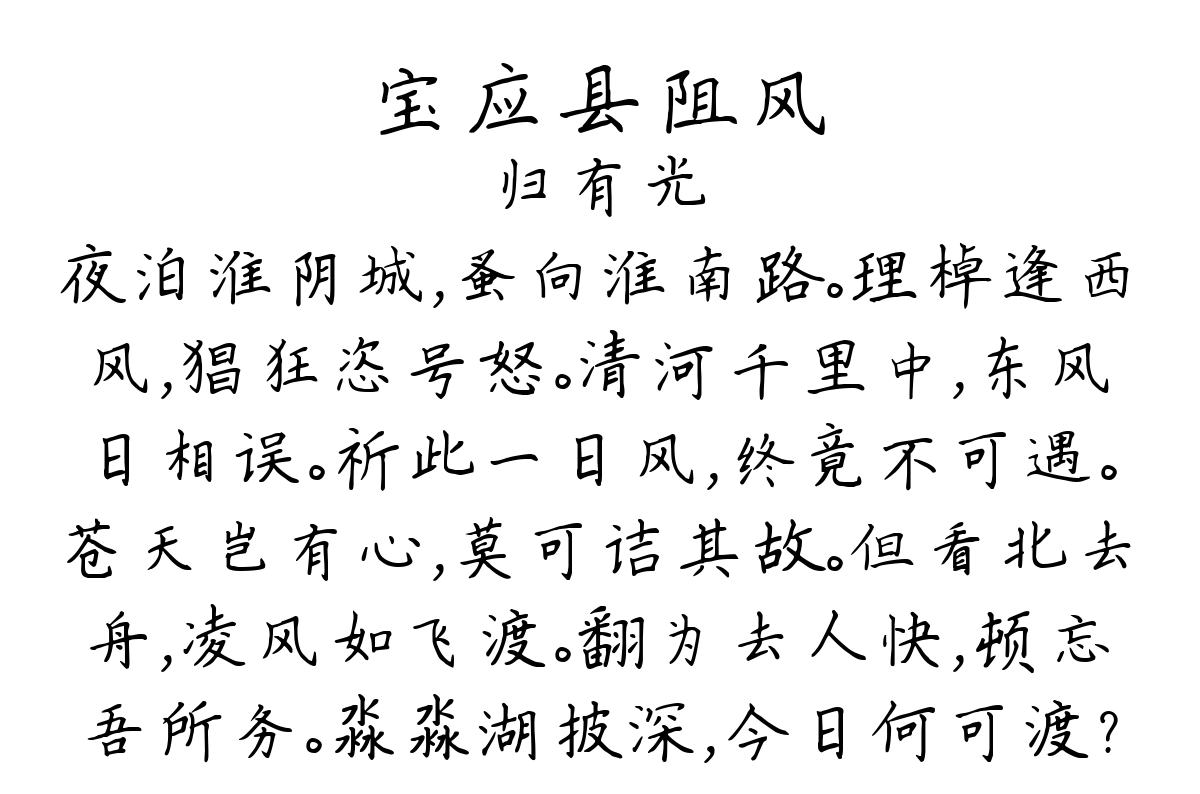 宝应县阻风
归有光
夜泊淮阴城,蚤向淮南路。理棹逢西
风,猖狂恣号怒。清河千里中,东风
日相误。祈此一日风,终竟不可遇。
苍天岂有心,莫可诘其故。但看北去
舟,凌风如飞渡。翻为去人快,顿忘
吾所务。淼淼湖披深,今日何可渡?